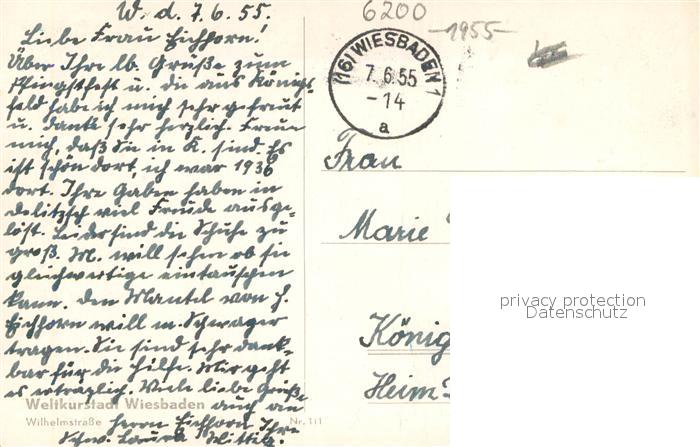 W. d. 7.6.55.
Liebe Frau Eichhorn!
Über Ihre lb. Grüße zum
Pfingstfest u. die aus Königs-
feld habe ich mich sehr gefreut
u. danke sehr herzlich. Freue
mich, daß Sie in K. sind. Es
ist schön dort, ich war 1936
dort. Ihre Gaben haben in
Delitzsch viel Freude ausge-
löst. Leider sind die Schuhe zu
groß. M. will sehen ob sie
gleichwertige eintauschen
kann. Den Mantel von H.
Eichhorn will m. Schwager
tragen. Sie sind sehr dank-
bar für die Hilfe. Mir geht
es erträglich. Viele liebe Grüße
auch an
Herrn Eichhorn Ihre
Schw. Laura
Weltkurstadt Wiesbaden
Wilhelmstraße Nr. 111
6200
-1955-
(16) WIESBADEN 1
7.6.55
-14
a
Frau
Marie
König
Heim
privacy protection
Datenschutz